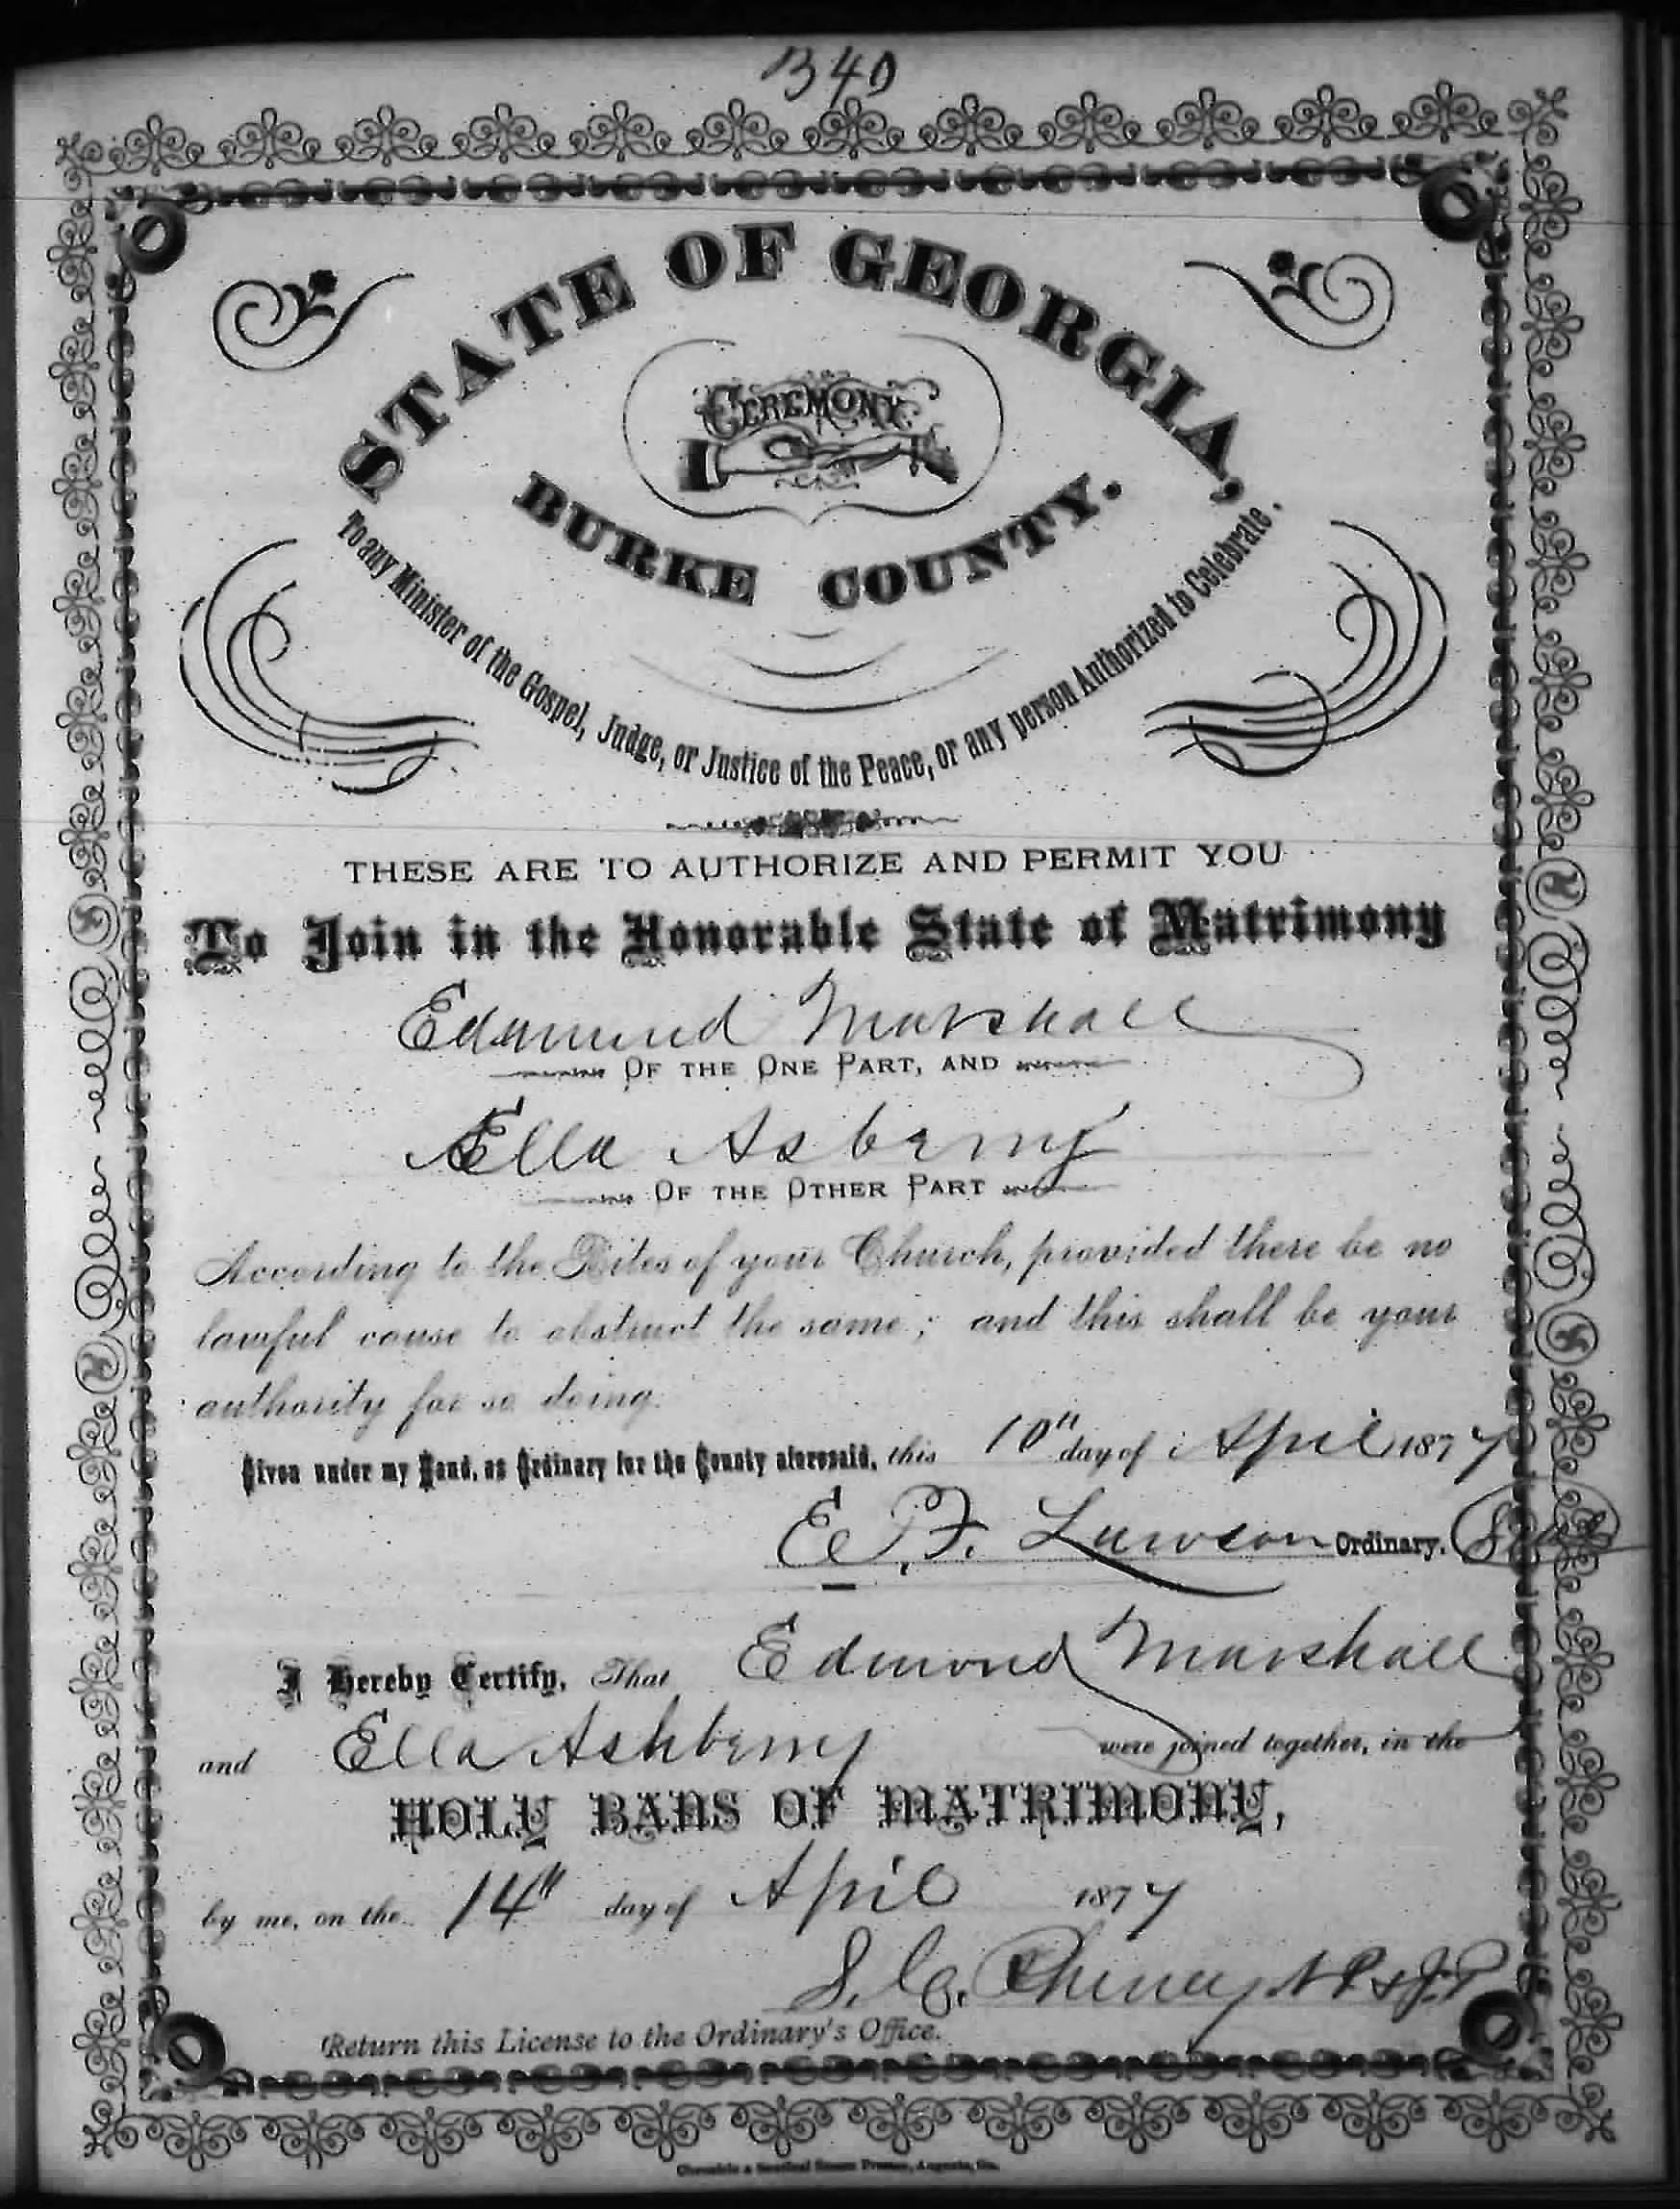 340
STATE OF GEORGIA,
CEREMONY
BURKE COUNTY.
To any Minister of the Gospel, Judge, or Justice of the Peace, or any person Authorized to Celebrate.
THESE ARE TO AUTHORIZE AND PERMIT YOU
To Join in the Honorable State of Matrimony
Edmund Marshall
OF THE ONE PART, AND
Ella Asberry
OF THE OTHER PART
According to the Rites of your Church, provided there be no
lawful cause to obstruct the same; and this shall be your
authority for so doing.
Given under my Hand, as Ordinary for the County aforesaid, this 10th day of April 1877
E. F. Lawson Ordinary. Seal
I Hereby Certify, That Edmond Marshall
and Ella Ashberry were joined together, in the
HOLY BANS OF MATRIMONY,
by me, on the 14th day of April 1877
S. C. N P & J. P
Return this License to the Ordinary's Office.
Chronicle & Sentinel Steam Presses, Augusta, Ga.